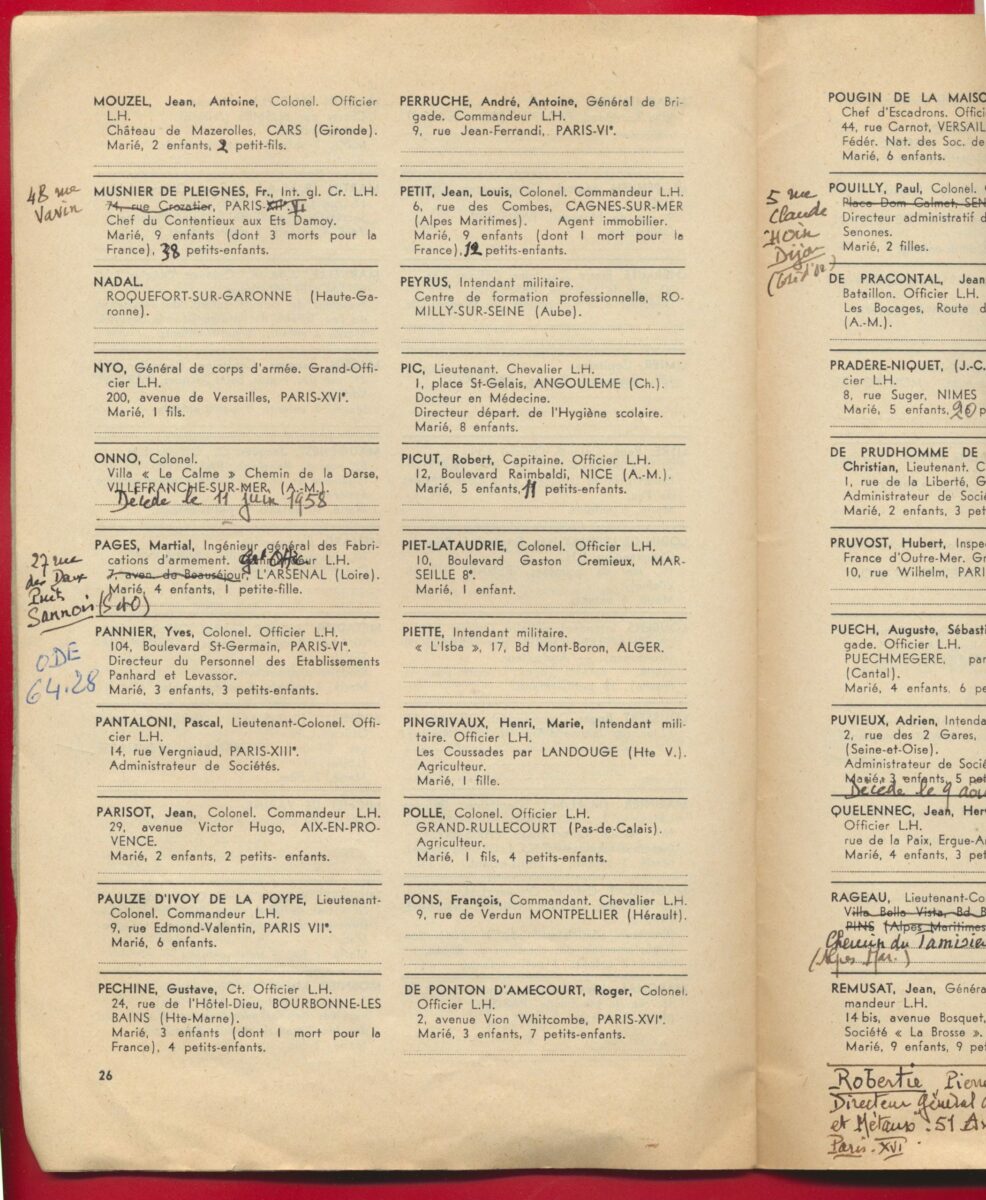 MOUZEL, Jean, Antoine, Colonel. Officier
L.H.
Château de Mazerolles, CARS (Gironde).
Marié, 2 enfants, 2 petit-fils.
48 rue
Vavin
MUSNIER DE PLEIGNES, Fr., Int. gl. Cr. L.H.
74, rue Crozatier, PARIS-XIIe. VI
Chef du Contentieux aux Ets Damoy.
Marié, 9 enfants (dont 3 morts pour la
France), 38 petits-enfants.
NADAL.
ROQUEFORT-SUR-GARONNE (Haute-Ga-
ronne).
NYO, Général de corps d'armée. Grand-Offi-
cier L.H.
200, avenue de Versailles, PARIS-XVIe.
Marié, 1 fils.
ONNO, Colonel.
Villa « Le Calme » Chemin de la Darse,
VILLEFRANCHE-SUR-MER, (A.-M.).
Décédé le 11 juin 1958
27 rue
des Deux
Puits
Sannois (S et O)
PAGES, Martial, Ingénieur général des Fabri-
cations d'armement. Gd Off. L.H.
7, aven. de Beauséjour, L'ARSENAL (Loire).
Marié, 4 enfants, 1 petite-fille.
ODE
64.28
PANNIER, Yves, Colonel. Officier L.H.
104, Boulevard St-Germain, PARIS-VIe.
Directeur du Personnel des Etablissements
Panhard et Levassor.
Marié, 3 enfants, 3 petits-enfants.
PANTALONI, Pascal, Lieutenant-Colonel. Offi-
cier L.H.
14, rue Vergniaud, PARIS-XIIIe.
Administrateur de Sociétés.
PARISOT, Jean, Colonel. Commandeur L.H.
29, avenue Victor Hugo, AIX-EN-PRO-
VENCE.
Marié, 2 enfants, 2 petits- enfants.
PAULZE D'IVOY DE LA POYPE, Lieutenant-
Colonel. Commandeur L.H.
9, rue Edmond-Valentin, PARIS VIIe.
Marié, 6 enfants.
PECHINE, Gustave, Ct. Officier L.H.
24, rue de l'Hôtel-Dieu, BOURBONNE-LES
BAINS (Hte-Marne).
Marié, 3 enfants (dont 1 mort pour la
France), 4 petits-enfants.
26
PERRUCHE, André, Antoine, Général de Bri-
gade. Commandeur L.H.
9, rue Jean-Ferrandi, PARIS-VIe.
PETIT, Jean, Louis, Colonel. Commandeur L.H.
6, rue des Combes, CAGNES-SUR-MER
(Alpes Maritimes). Agent immobilier.
Marié, 9 enfants (dont 1 mort pour la
France), 12 petits-enfants.
PEYRUS, Intendant militaire.
Centre de formation professionnelle, RO-
MILLY-SUR-SEINE (Aube).
PIC, Lieutenant. Chevalier L.H.
1, place St-Gelais, ANGOULEME (Ch.).
Docteur en Médecine.
Directeur départ. de l'Hygiène scolaire.
Marié, 8 enfants.
PICUT, Robert, Capitaine. Officier L.H.
12, Boulevard Raimbaldi, NICE (A.-M.).
Marié, 5 enfants, 11 petits-enfants.
PIET-LATAUDRIE, Colonel. Officier L.H.
10, Boulevard Gaston Cremieux, MAR-
SEILLE 8e.
Marié, 1 enfant.
PIETTE, Intendant militaire.
« L'Isba », 17, Bd Mont-Boron, ALGER.
PINGRIVAUX, Henri, Marie, Intendant mili-
taire. Officier L.H.
Les Coussades par LANDOUGE (Hte V.).
Agriculteur.
Marié, 1 fille.
POLLE, Colonel. Officier L.H.
GRAND-RULLECOURT (Pas-de-Calais).
Agriculteur.
Marié, 1 fils, 4 petits-enfants.
PONS, François, Commandant. Chevalier L.H.
9, rue de Verdun MONTPELLIER (Hérault).
DE PONTON D'AMECOURT, Roger, Colonel.
Officier L.H.
2, avenue Vion Whitcombe, PARIS-XVIe.
Marié, 3 enfants, 7 petits-enfants.
POUGIN DE LA MAISO
Chef d'Escadrons. Offici
44, rue Carnot, VERSAIL
Fédér. Nat. des Soc. de
Marié, 6 enfants.
5 rue
Claude
HOIN
Dijon
(Côte d'Or)
POUILLY, Paul, Colonel.
Place Dom Calmet, SEN
Directeur administratif d
Senones.
Marié, 2 filles.
DE PRACONTAL, Jean
Bataillon. Officier L.H.
Les Bocages, Route d
(A.-M.).
PRADÈRE-NIQUET, (J.-C.
cier L.H.
8, rue Suger, NIMES
Marié, 5 enfants, 20 p
DE PRUDHOMME DE
Christian, Lieutenant. C
1, rue de la Liberté, G
Administrateur de Socié
Marié, 2 enfants, 3 pet
PRUVOST, Hubert, Inspe
France d'Outre-Mer. Gr
10, rue Wilhelm, PARI
PUECH, Auguste, Sébasti
gade. Officier L.H.
PUECHMEGERE, par
(Cantal).
Marié, 4 enfants, 6 pe
PUVIEUX, Adrien, Intenda
2, rue des 2 Gares,
(Seine-et-Oise).
Administrateur de Socié
Marié, 3 enfants, 5 pet
Décédé le 9 aoû
QUELENNEC, Jean, Herv
Officier L.H.
rue de la Paix, Ergue-A
Marié, 4 enfants, 3 pet
RAGEAU, Lieutenant-Co
Villa Bella Vista, Bd B
PINS (Alpes Maritimes
Chemin du Tamisie
(Alpes Mar.)
REMUSAT, Jean, Généra
mandeur L.H.
14 bis, avenue Bosquet,
Société « La Brosse ».
Marié, 9 enfants, 9 pet
Robertie, Pierre
Directeur Général d
et Métaux : 51 Av
Paris. XVI